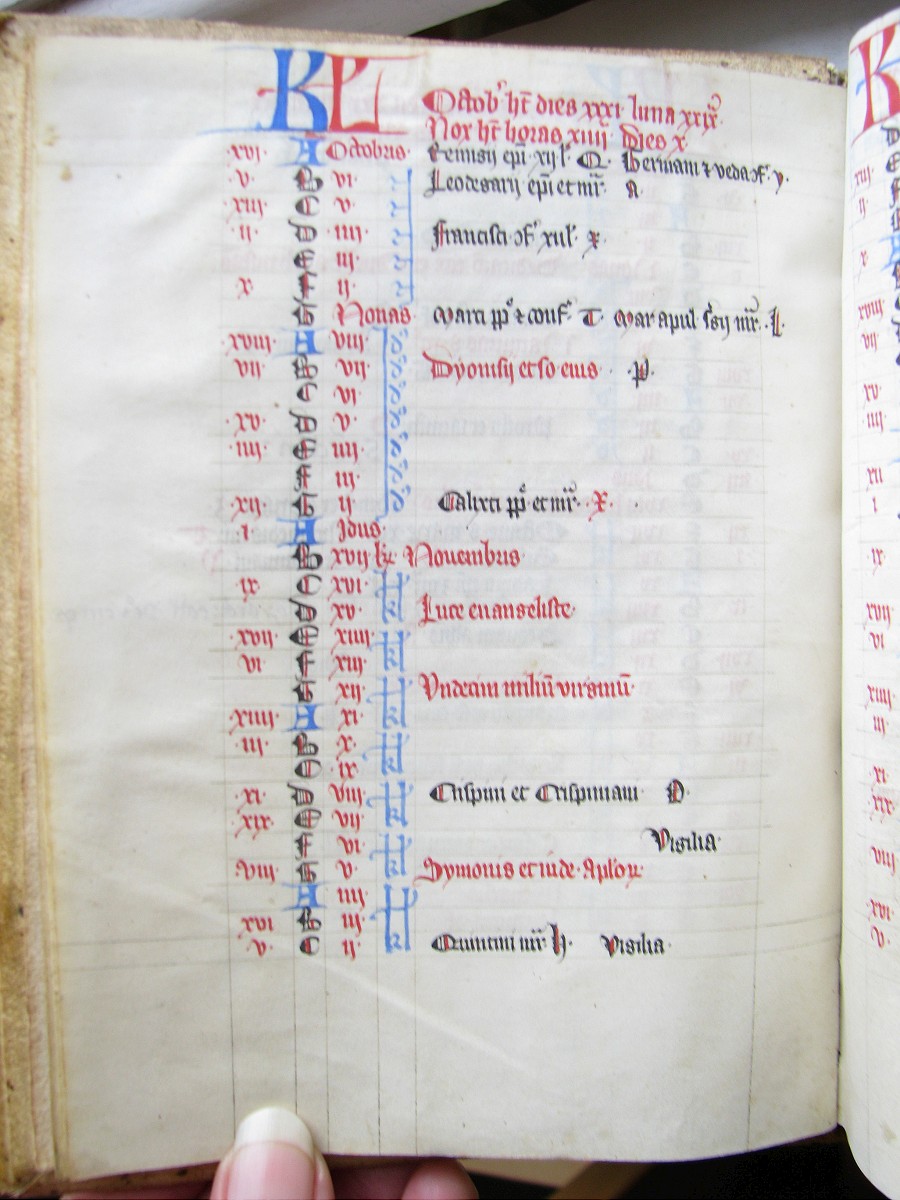 KL Octob' ht dies xxxi luna xxix
Nox ht horas xiiii Dies x
xvi A Octobris Remigii epi Germani & veda
v B vi Leodegarii epi et mr a
xiii C v
ii D iiii Francisci xiil x
E iii
x F ii
G Nonas Marci pp & conf T Mar apul mr L
xviii A viii
vii B vii Dyonisii et so eius p
C vi
xv D v
iiii E iiii
F iii
xii G ii Calixti pp et mr X
i A Idus
B xvii kl Nouenbris
ix C xvi
D xv Luce euangeliste
xvii E xiiii
vi F xiii
G xii Undecim miliu virginu
xiiii A xi
iii B x
C ix
xi D viii Crispini et Crispiniani D
xix E vii
F vi Vigilia
viii G v Symonis et iude aplor
A iiii
xvi B iii
v C ii Quintini mr h Vigilia